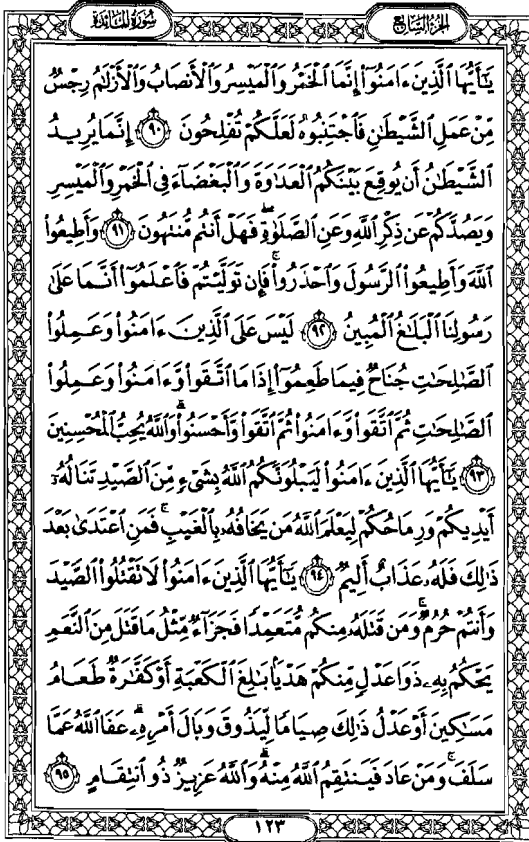 سُورَةُ المَائـدَة
الجزءُ السَّابِع
يَٰٓأَيُّهَا ٱلَّذِينَ ءَامَنُوٓا۟ إِنَّمَا ٱلْخَمْرُ وَٱلْمَيْسِرُ وَٱلْأَنصَابُ وَٱلْأَزْلَٰمُ رِجْسٌ
مِّنْ عَمَلِ ٱلشَّيْطَٰنِ فَٱجْتَنِبُوهُ لَعَلَّكُمْ تُفْلِحُونَ ٩٠ إِنَّمَا يُرِيدُ
ٱلشَّيْطَٰنُ أَن يُوقِعَ بَيْنَكُمُ ٱلْعَدَٰوَةَ وَٱلْبَغْضَآءَ فِى ٱلْخَمْرِ وَٱلْمَيْسِرِ
وَيَصُدَّكُمْ عَن ذِكْرِ ٱللَّهِ وَعَنِ ٱلصَّلَوٰةِ ۖ فَهَلْ أَنتُم مُّنتَهُونَ ٩١ وَأَطِيعُوا۟
ٱللَّهَ وَأَطِيعُوا۟ ٱلرَّسُولَ وَٱحْذَرُوا۟ ۚ فَإِن تَوَلَّيْتُمْ فَٱعْلَمُوٓا۟ أَنَّمَا عَلَىٰ
رَسُولِنَا ٱلْبَلَٰغُ ٱلْمُبِينُ ٩٢ لَيْسَ عَلَى ٱلَّذِينَ ءَامَنُوا۟ وَعَمِلُوا۟
ٱلصَّٰلِحَٰتِ جُنَاحٌ فِيمَا طَعِمُوٓا۟ إِذَا مَا ٱتَّقَوا۟ وَّءَامَنُوا۟ وَعَمِلُوا۟
ٱلصَّٰلِحَٰتِ ثُمَّ ٱتَّقَوا۟ وَّءَامَنُوا۟ ثُمَّ ٱتَّقَوا۟ وَّأَحْسَنُوا۟ ۗ وَٱللَّهُ يُحِبُّ ٱلْمُحْسِنِينَ
٩٣ يَٰٓأَيُّهَا ٱلَّذِينَ ءَامَنُوا۟ لَيَبْلُوَنَّكُمُ ٱللَّهُ بِشَىْءٍ مِّنَ ٱلصَّيْدِ تَنَالُهُۥٓ
أَيْدِيكُمْ وَرِمَاحُكُمْ لِيَعْلَمَ ٱللَّهُ مَن يَخَافُهُۥ بِٱلْغَيْبِ ۚ فَمَنِ ٱعْتَدَىٰ بَعْدَ
ذَٰلِكَ فَلَهُۥ عَذَابٌ أَلِيمٌ ٩٤ يَٰٓأَيُّهَا ٱلَّذِينَ ءَامَنُوا۟ لَا تَقْتُلُوا۟ ٱلصَّيْدَ
وَأَنتُمْ حُرُمٌ ۚ وَمَن قَتَلَهُۥ مِنكُم مُّتَعَمِّدًا فَجَزَآءٌ مِّثْلُ مَا قَتَلَ مِنَ ٱلنَّعَمِ
يَحْكُمُ بِهِۦ ذَوَا عَدْلٍ مِّنكُمْ هَدْيًۢا بَٰلِغَ ٱلْكَعْبَةِ أَوْ كَفَّٰرَةٌ طَعَامُ
مَسَٰكِينَ أَوْ عَدْلُ ذَٰلِكَ صِيَامًا لِّيَذُوقَ وَبَالَ أَمْرِهِۦ ۗ عَفَا ٱللَّهُ عَمَّا
سَلَفَ ۚ وَمَنْ عَادَ فَيَنتَقِمُ ٱللَّهُ مِنْهُ ۗ وَٱللَّهُ عَزِيزٌ ذُو ٱنتِقَامٍ ٩٥
١٢٣